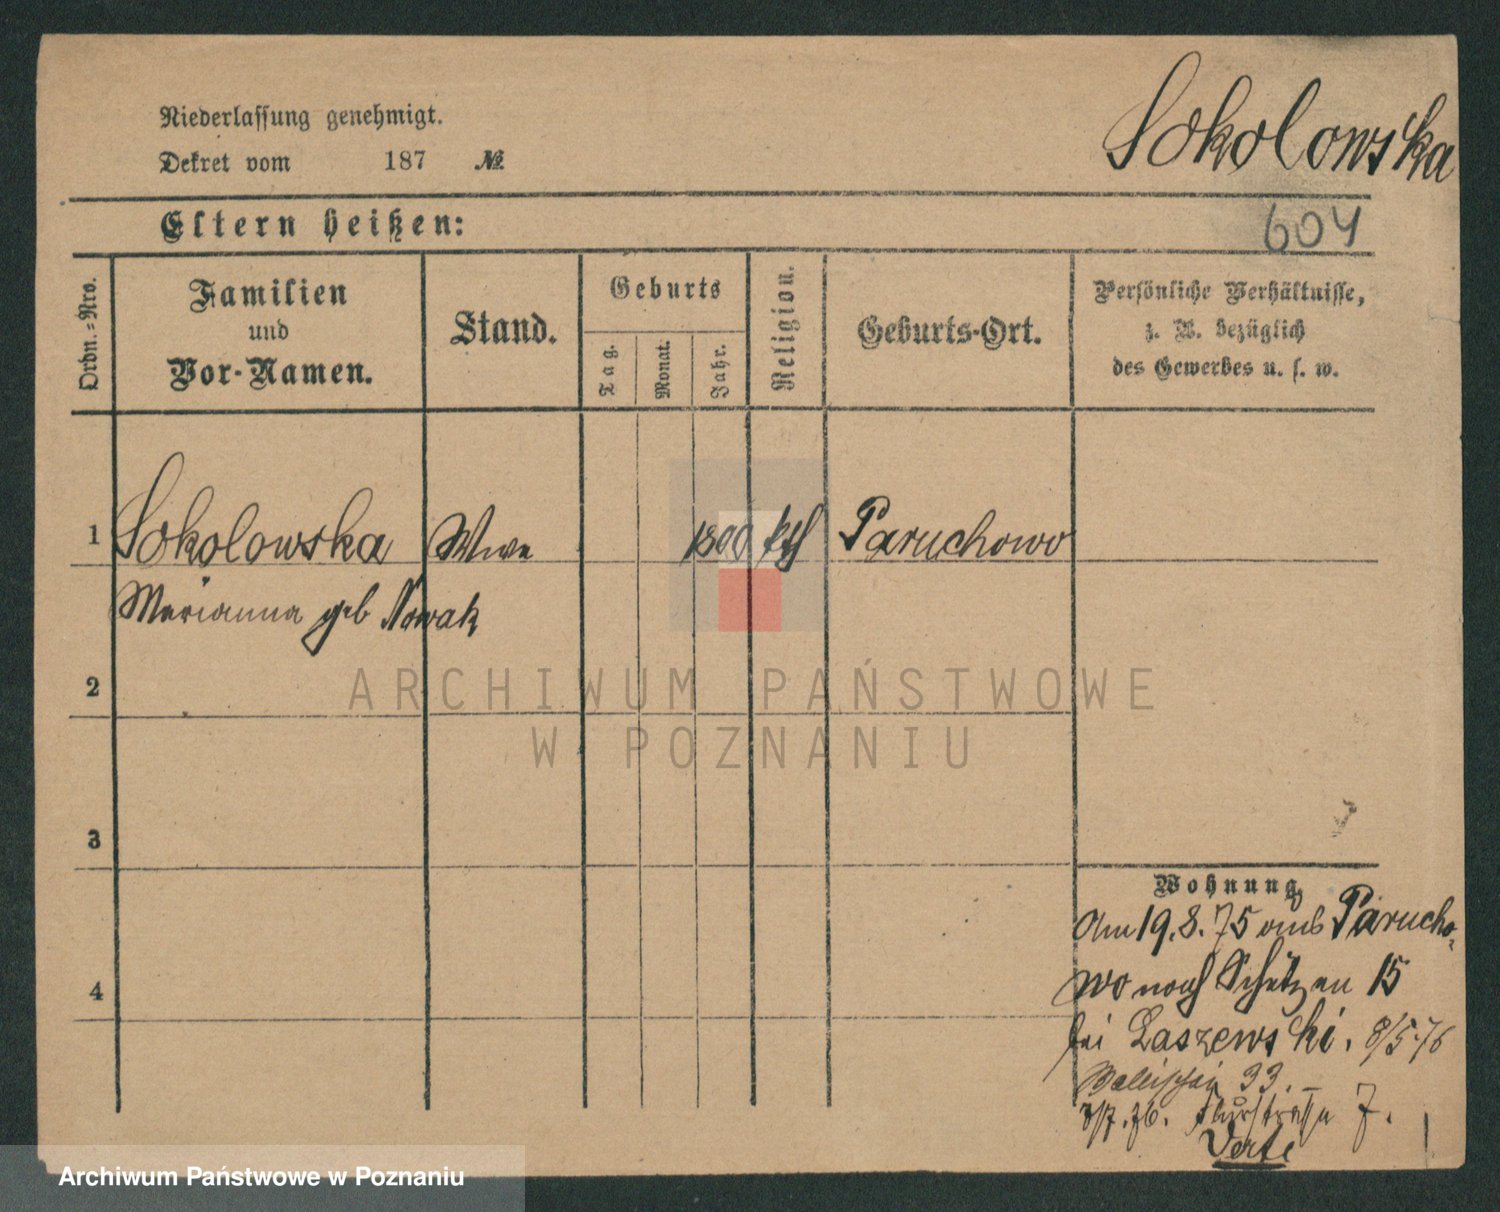 Sokolowska
Niederlassung genehmigt.
Dekret vom 187 №
604
Eltern heißen:
Ordn.-Nro.
Familien
und
Vor-Namen.
Stand.
Geburts
Tag.
Monat.
Jahr.
Religion.
Geburts-Ort.
Persönliche Verhältnisse,
z. B. bezüglich
des Gewerbes u. s. w.
1 Sokolowska Wwe 1800 kth Paruchowo
Marianna geb Nowak
2
3
4
Wohnung,
Am 19.8.75 aus Parucho-
wo nach Schützen 15
bei Laszewski. 8/5.76
Wallischei 33. –
7. 76. Flurstrasse 7.
Verte
ARCHIWUM PAŃSTWOWE
W POZNANIU
Archiwum Państwowe w Poznaniu